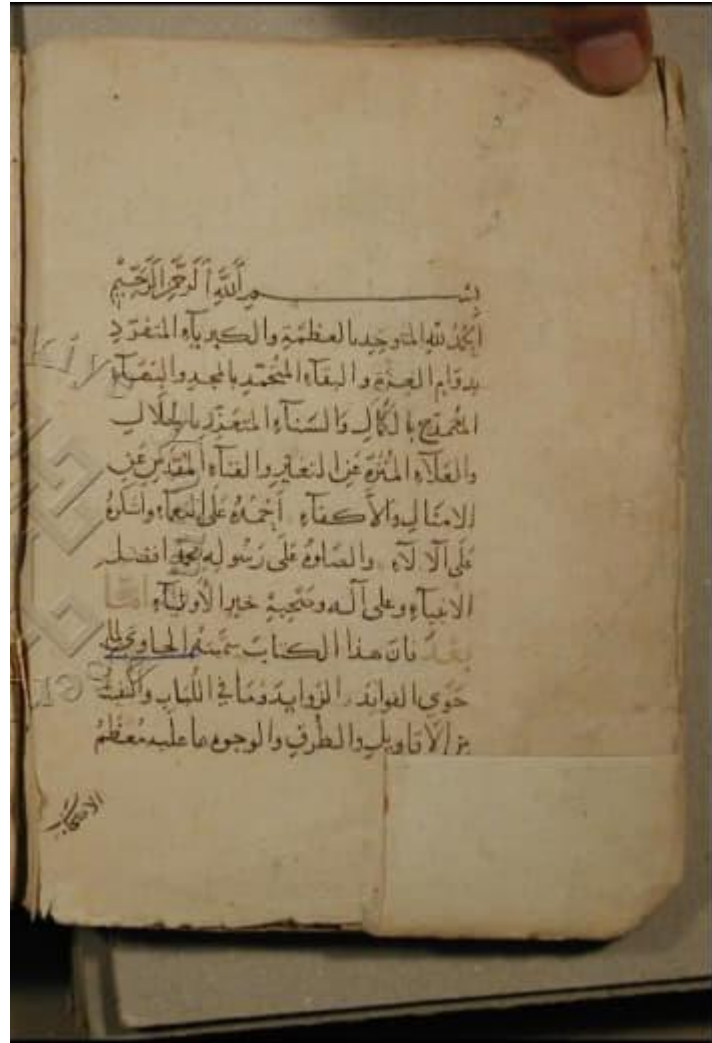 بسم الله الرحمن الرحيم
الحمد لله المتوحد بالعظمة والكبرياء المتفرد
بدوام العزة والبقاء المتحمد بالمجد والبهاء
المتمدح بالكمال والسناء المتعزز بالجلال
والعلاء المنزه عن التغاير والفناء المقدس عن
الامثال والأكفاء أحمده على النعماء واشكره
على الآلاء والصلوة على رسوله محمد افضل
الانبياء وعلى آله وصحبه خير الأولياء اما
بعد فان هذا الكتاب سميته الحاوي لما
حوى الفوائد الزوايد وما في اللباب
من الأقاويل والطرق والوجوه ما عليه معظم
الاصحاب